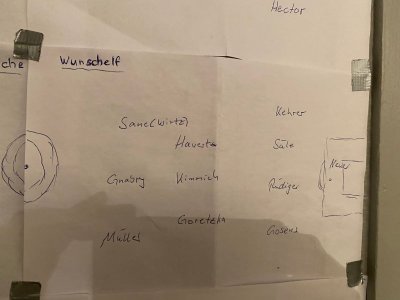 Hector
che
Wunschelf
Kehrer
Sane (Wirtz)
Havertz
Süle
Neuer
Gnabry
Kimmich
Rüdiger
Goretzka
Gosens
Müller